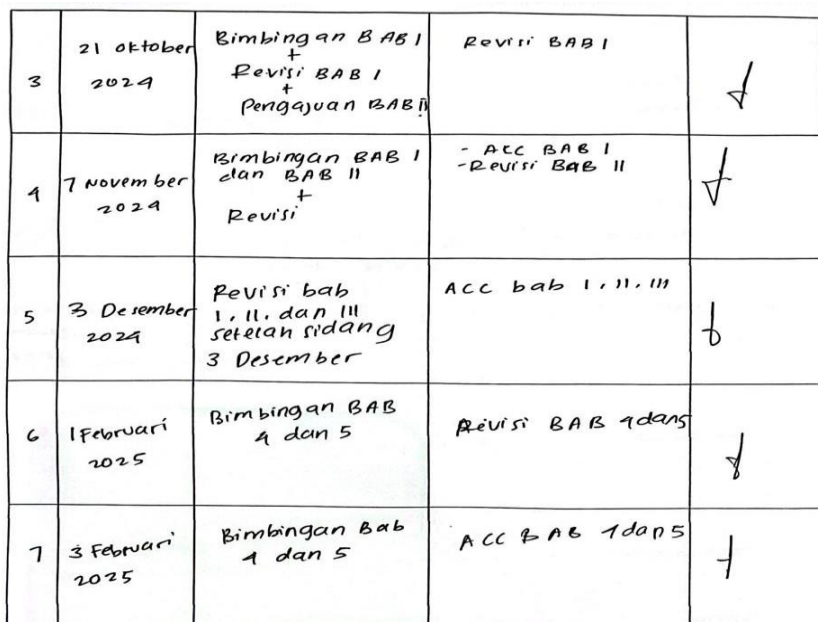 3
21 Oktober
2024
Bimbingan BAB I
+
Revisi BAB I
+
Pengajuan BAB II
Revisi BAB I
4
7 November
2024
Bimbingan BAB I
dan BAB II
+
Revisi
- ACC BAB I
- Revisi BAB II
5
3 Desember
2024
Revisi bab
I, II, dan III
setelah sidang
3 Desember
ACC bab I, II, III
6
1 Februari
2025
Bimbingan BAB
4 dan 5
Revisi BAB 4 dan 5
7
3 Februari
2025
Bimbingan Bab
4 dan 5
ACC BAB 4 dan 5